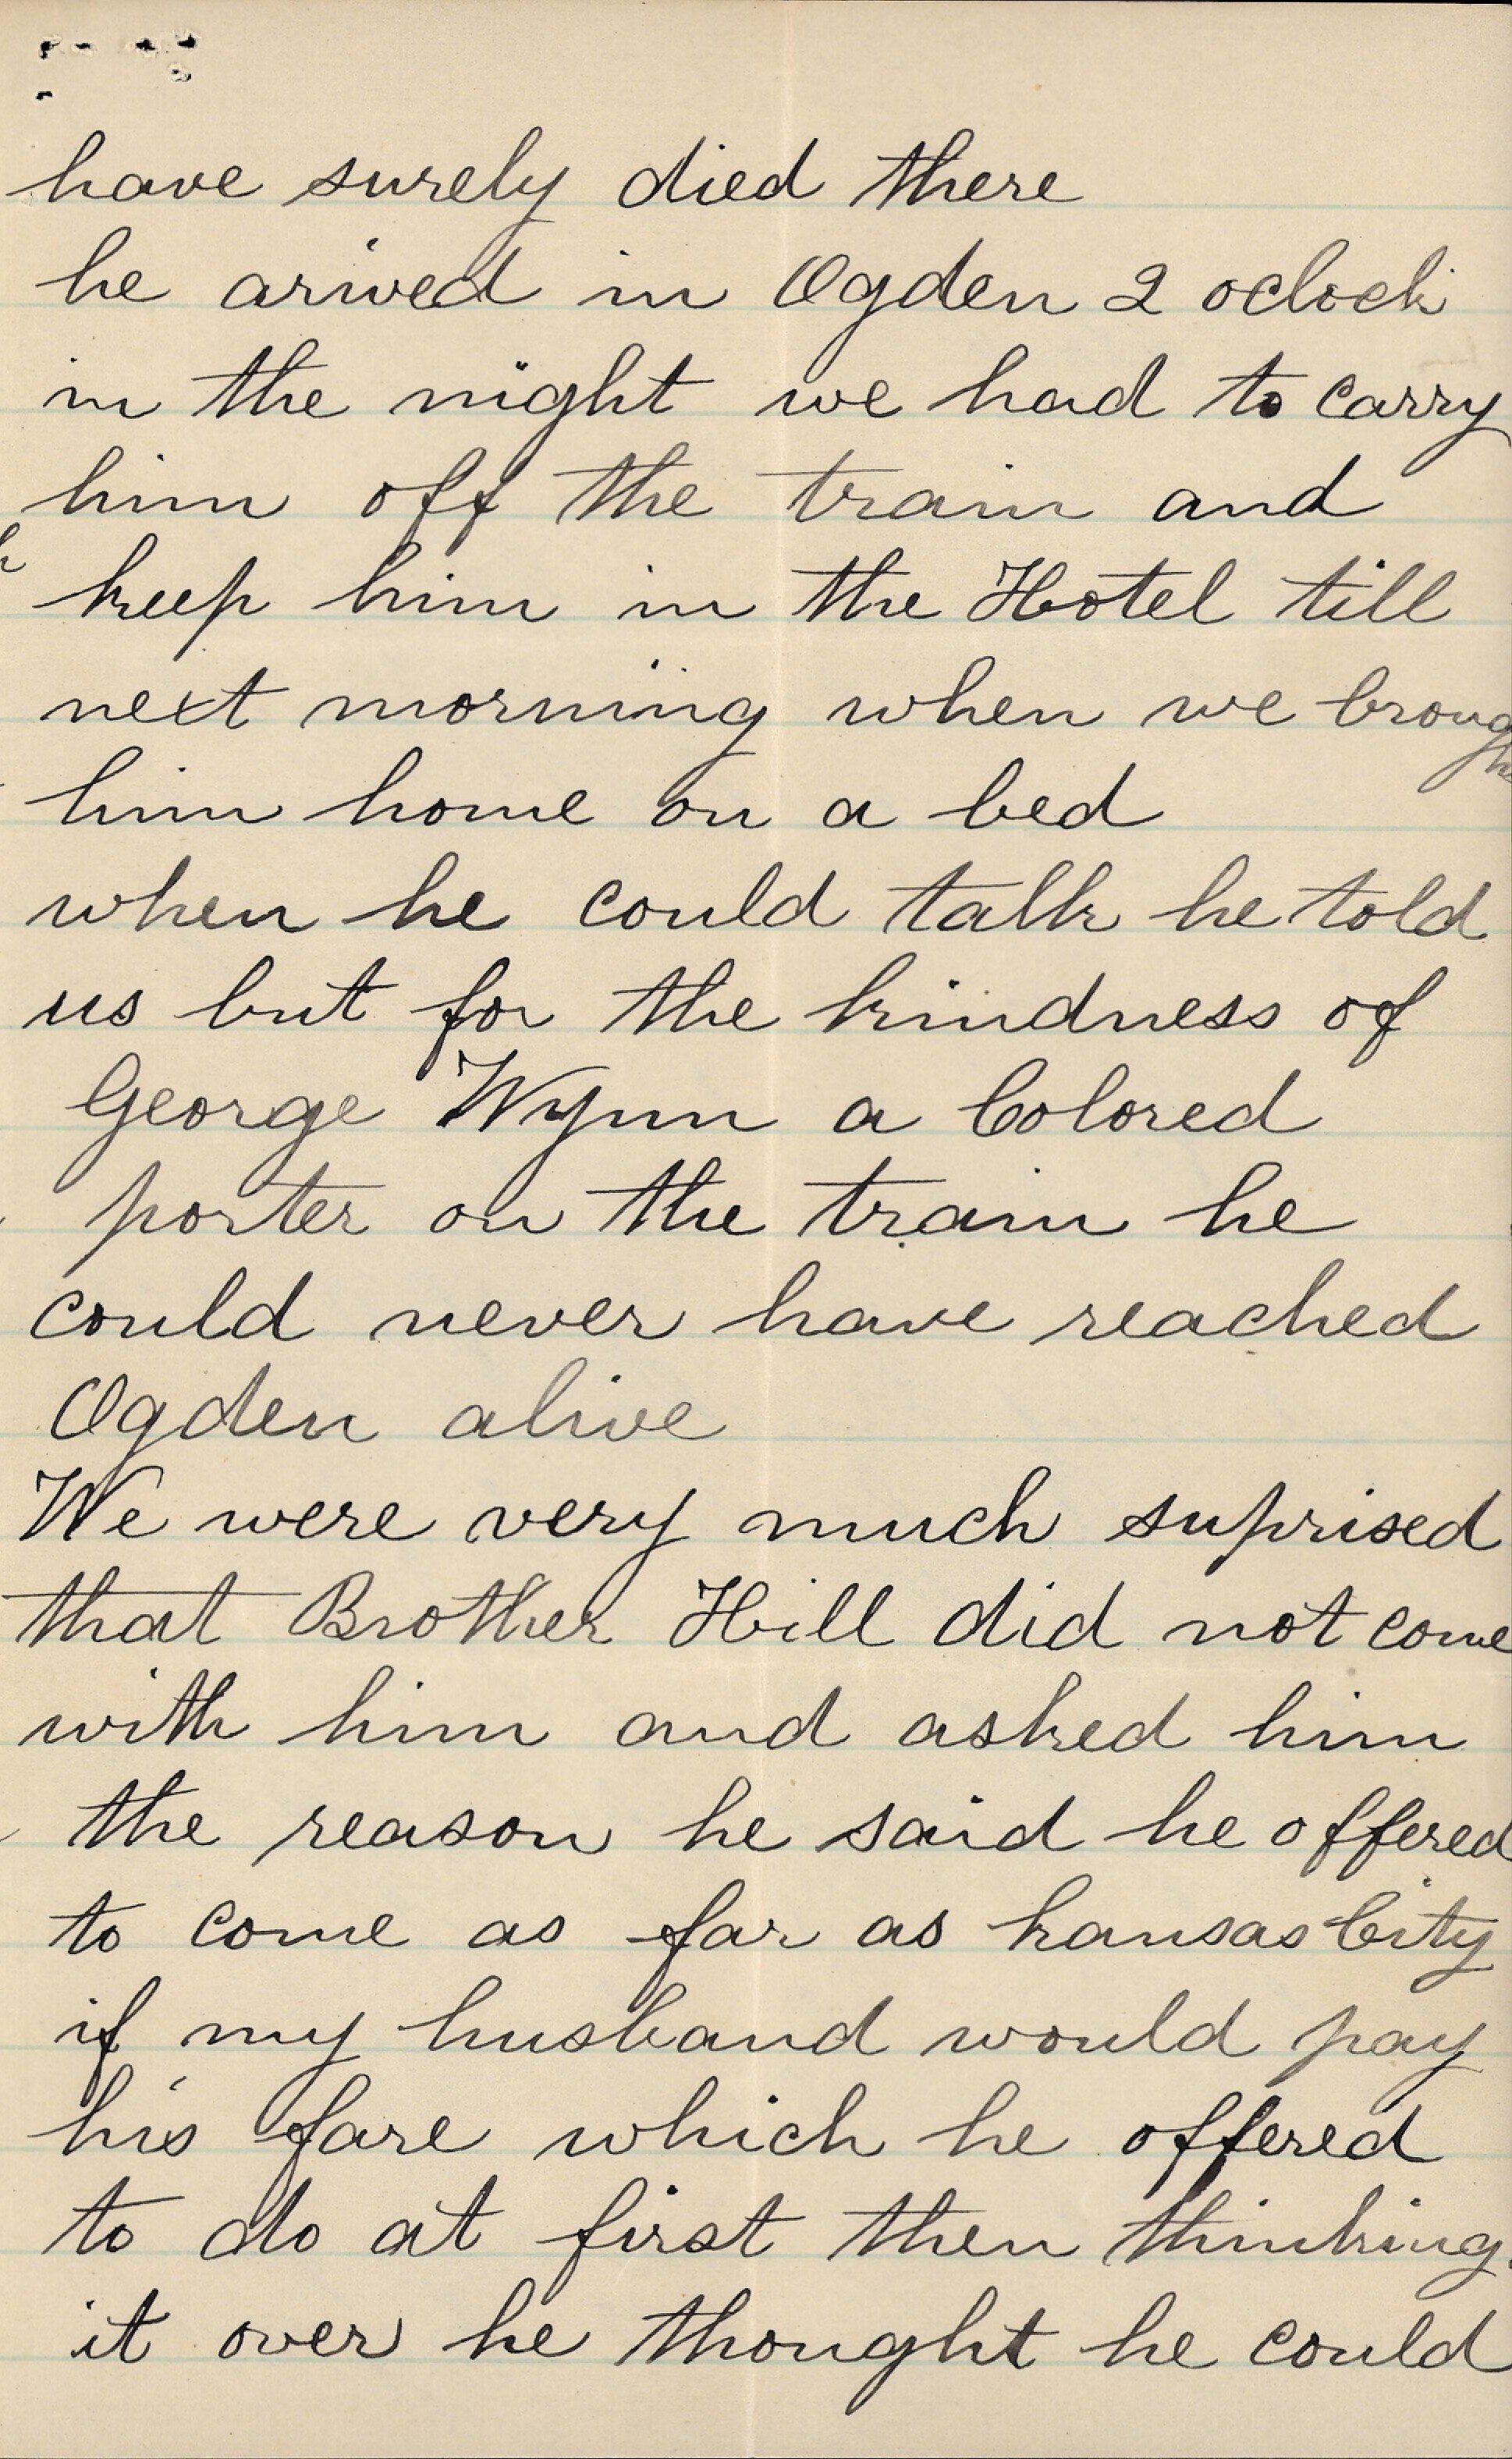 have surely died there
he arived in Ogden 2 oclock
in the night we had to carry
him off the train and
keep him in the Hotel till
next morning when we brough
him home on a bed
when he could talk he told
us but for the kindness of
George Wynn a Colored
porter on the train he
could never have reached
Ogden alive
We were very much suprised
that Brother Hill did not come
with him and asked him
the reason he said he offered
to come as far as kansas City
if my husband would pay
his fare which he offered
to do at first then thinking
it over he thought he could